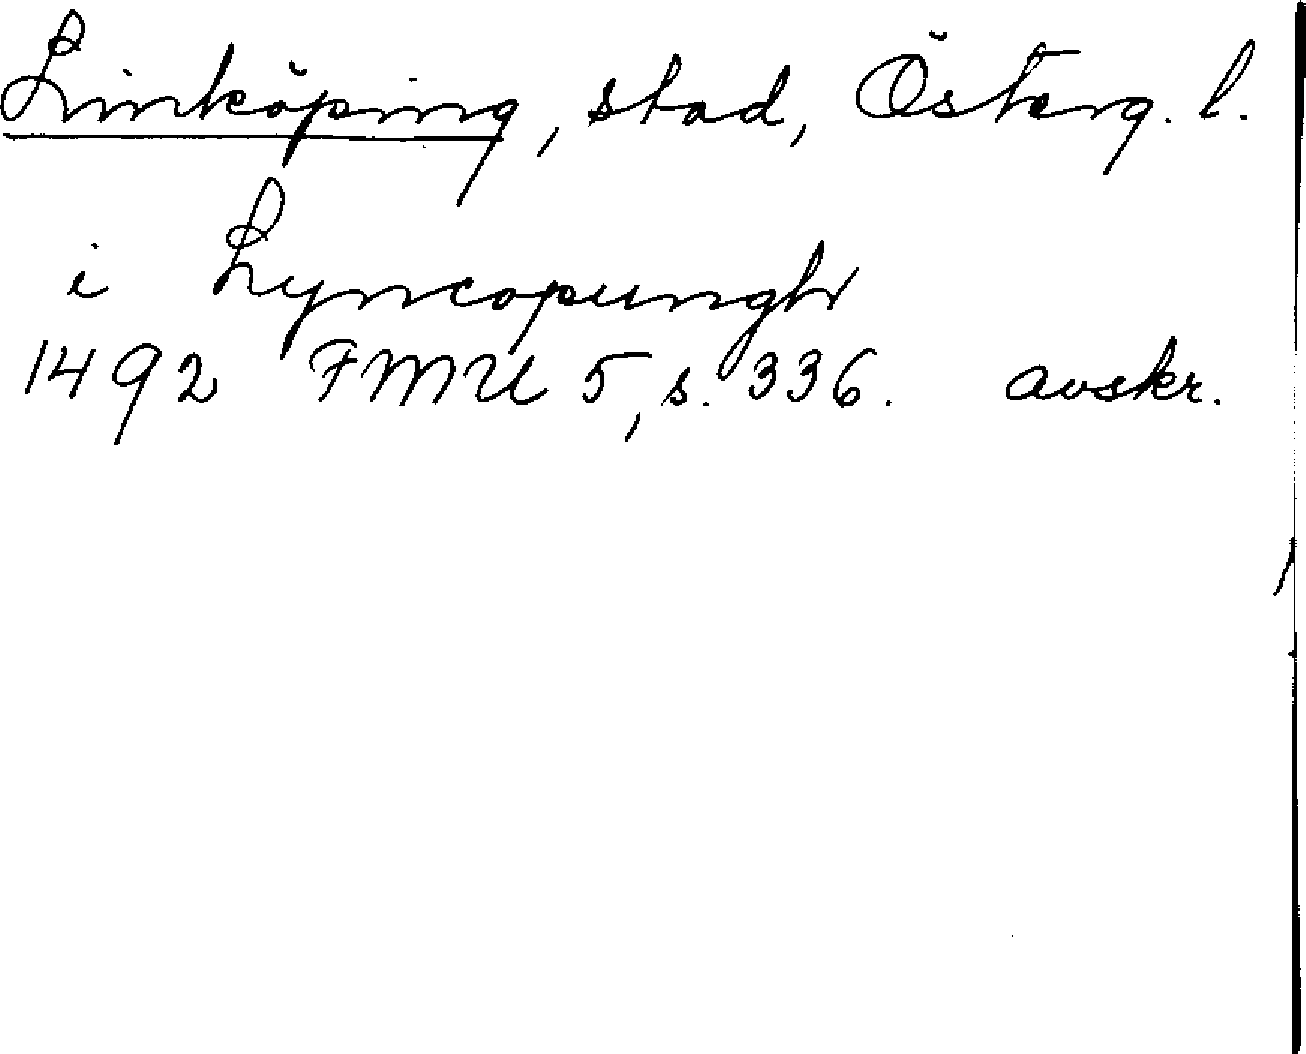 Linköping, stad, Österg. l.
i Lyncopungh
1492 FMU 5, s. 336. avskr.